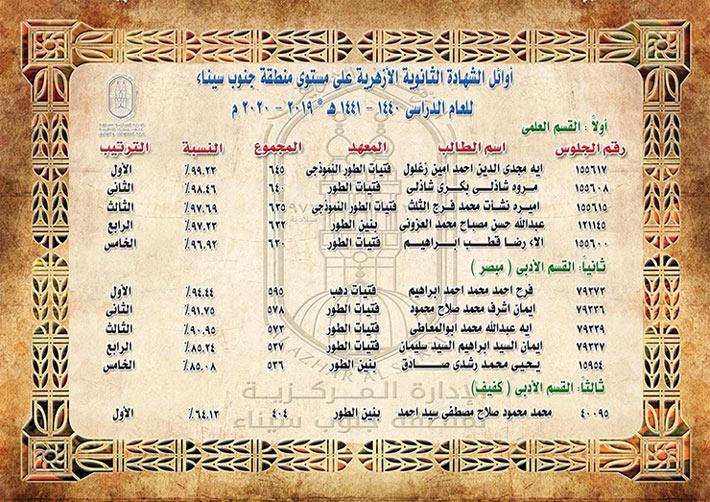 أوائل الشهادة الثانوية الأزهرية على مستوى منطقة جنوب سيناء
للعام الدراسى ١٤٤٠ - ١٤٤١ هـ * ٢٠١٩ - ٢٠٢٠ م
أولاً : القسم العلمى
رقم الجلوس اسم الطالب المعهد المجموع النسبة الترتيب
١٥٥٦١٧ ايه مجدى الدين احمد امين زغلول فتيات الطور النموذجى ٦٤٥ ٩٩.٢٣٪ الأول
١٥٥٦٠٨ مروه شاذلى بكرى شاذلى فتيات الطور ٦٤٠ ٩٨.٤٦٪ الثانى
١٥٥٦١٥ اميره نشات محمد فرج الثلث فتيات الطور النموذجى ٦٣٥ ٩٧.٦٩٪ الثالث
١٢١١٤٥ عبدالله حسن مصباح محمد العزونى بنين الطور ٦٣٢ ٩٧.٢٣٪ الرابع
١٥٥٦٠٠ الاء رضا قطب ابراهيم فتيات الطور ٦٣٠ ٩٦.٩٢٪ الخامس
ثانياً : القسم الأدبى ( مبصر )
٧٩٣٧٣ فرح احمد محمد احمد ابراهيم فتيات دهب ٥٩٥ ٩٤.٤٤٪ الأول
٧٩٣٣٦ ايمان اشرف محمد صلاح محمود فتيات الطور ٥٧٨ ٩١.٧٥٪ الثانى
٧٩٣٢٩ ايه عبدالله محمد ابوالمعاطى فتيات الطور ٥٧٣ ٩٠.٩٥٪ الثالث
٧٩٣٣٧ ايمان السيد ابراهيم السيد سليمان فتيات الطور ٥٣٧ ٨٥.٢٤٪ الرابع
١٥٩٥٤ يحيى محمد رشدى صادق بنين الطور ٥٣٦ ٨٥.٠٨٪ الخامس
ثالثاً : القسم الأدبى ( كفيف )
٤٠٠٩٥ محمد محمود صلاح مصطفى سيد احمد بنين الطور ٤٠٤ ٦٤.١٣٪ الأول